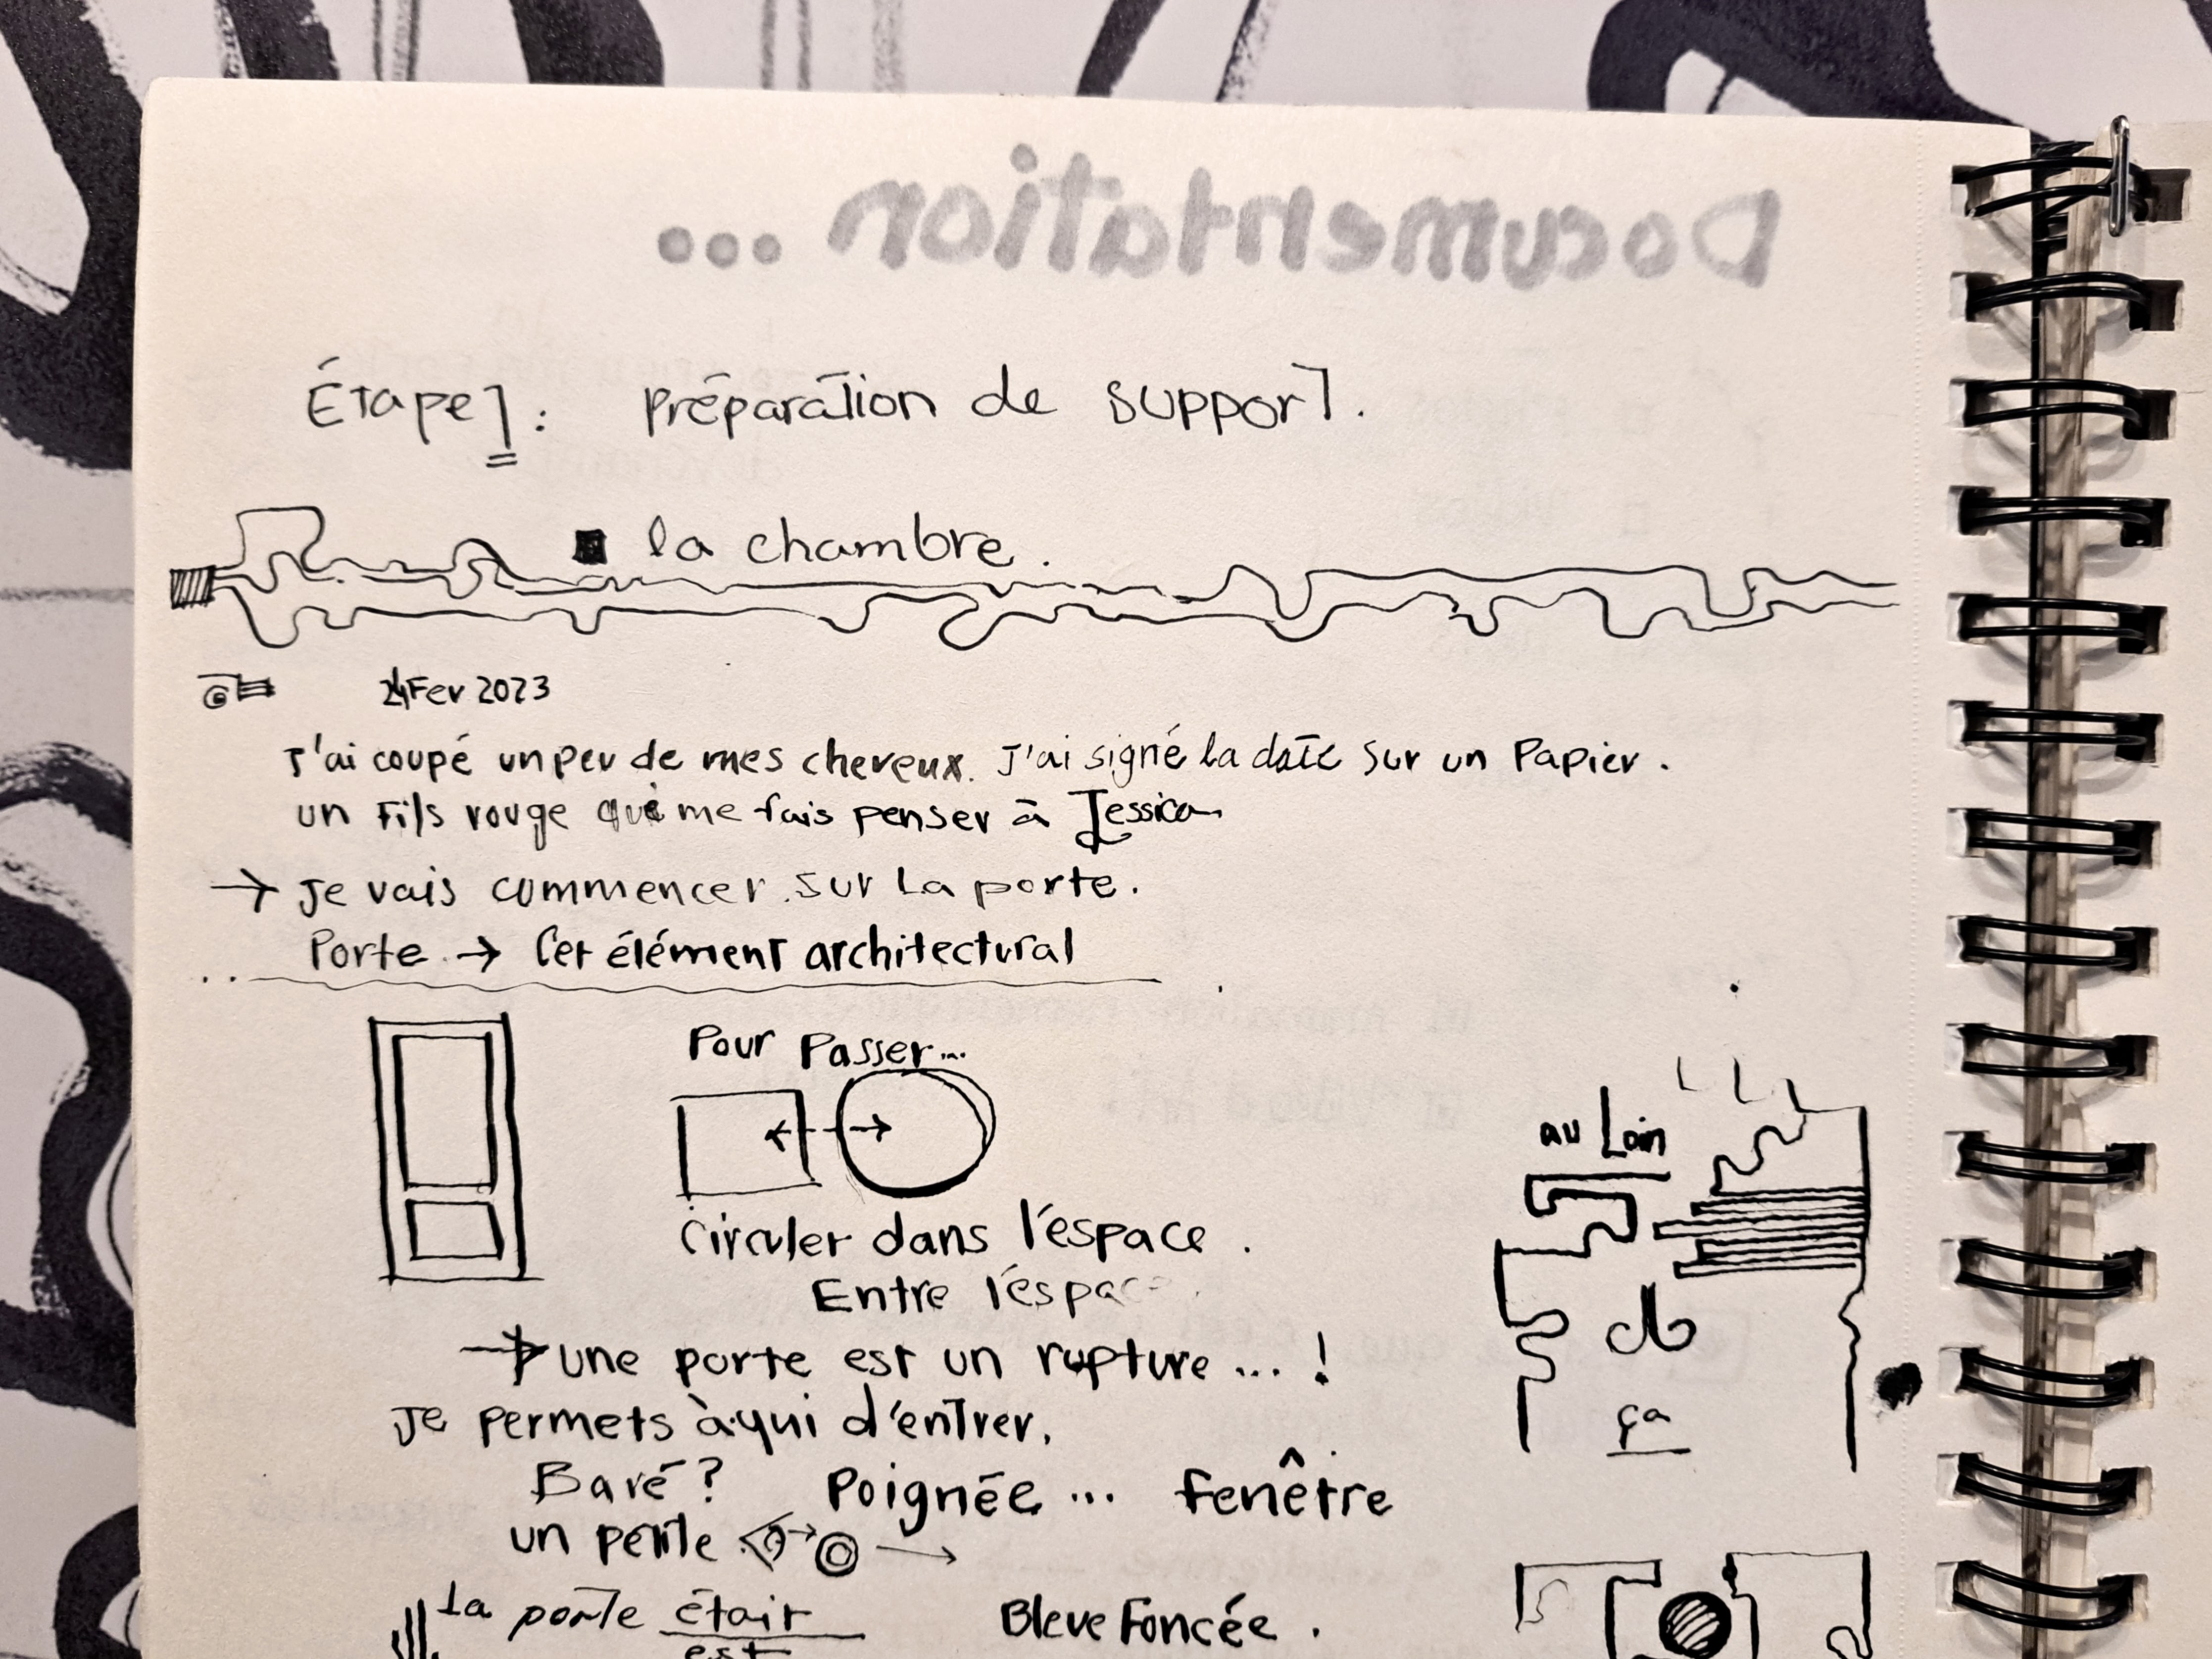 Documentation ...
Étape 1 : Préparation de support.
la chambre.
24 Fev 2023
J'ai coupé un peu de mes cheveux. J'ai signé la date sur un Papier.
un Fils rouge qui me fais penser à Jessica
→ Je vais commencer sur La porte.
Porte → Cet élément architectural
Pour Passer...
au Loin
Circuler dans l'espace.
Entre l'espace
→ une porte est un rupture ... !
Je permets à qui d'entrer.
ça
Baré ? Poignée ... fenêtre
un petite
La porte était Bleue Foncée.
est